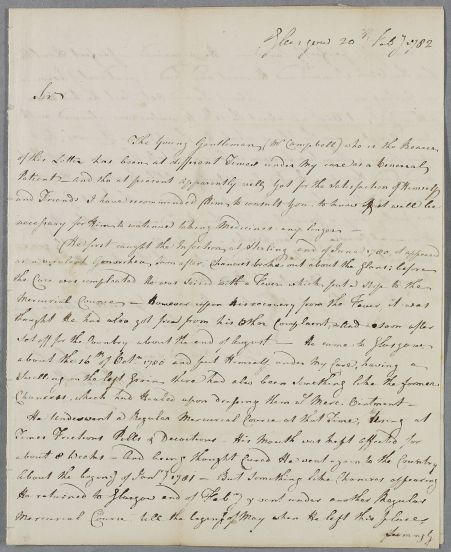 Glasgow 20th Feby 1782
Sir
The Young Gentleman (Mr Campbell) who is the Bearer
of this Letter has been at different Times under My care as a Venereal
Patient and tho at present apparently well, Yet for the Satisfaction of Himself
and Friends I have recommended Him to consult You to know if it will be
necessary for Him to continue taking Medicines any longer —
He first caught the Infection at Stirling end of June 1780 it appeared
as a Gonorrhea, soon after Chancres broke out about the Glans; before
the Cure was compleated He was Seized with a Fever which put a Stop to the
Mercurial Course — However upon His recovery from the Fever it was
thought He had also got free from his Other Complaint, and soon after
Set off for the Country about the end of August — He came to Glasgow
about the 16th of Octr 1780 and put Himself under My Care, having a
Swelling in the left Groin there had also been Something like the former
Chancres, which had Healed upon dressing them wt Merc. Ointment —
He underwent a Regular Mercurial Course at that Time, Using at
Times Frictions Pills & Decoctions — His Mouth was kept affected for
about 8 Weeks — And being thought Cured He went again to the Country
about the beging of Jany 1781 — But Something like Chancres appearing
He returned to Glasgow end of Feby & went under another Regular
Mercurial Course till the beging of May when He left this place